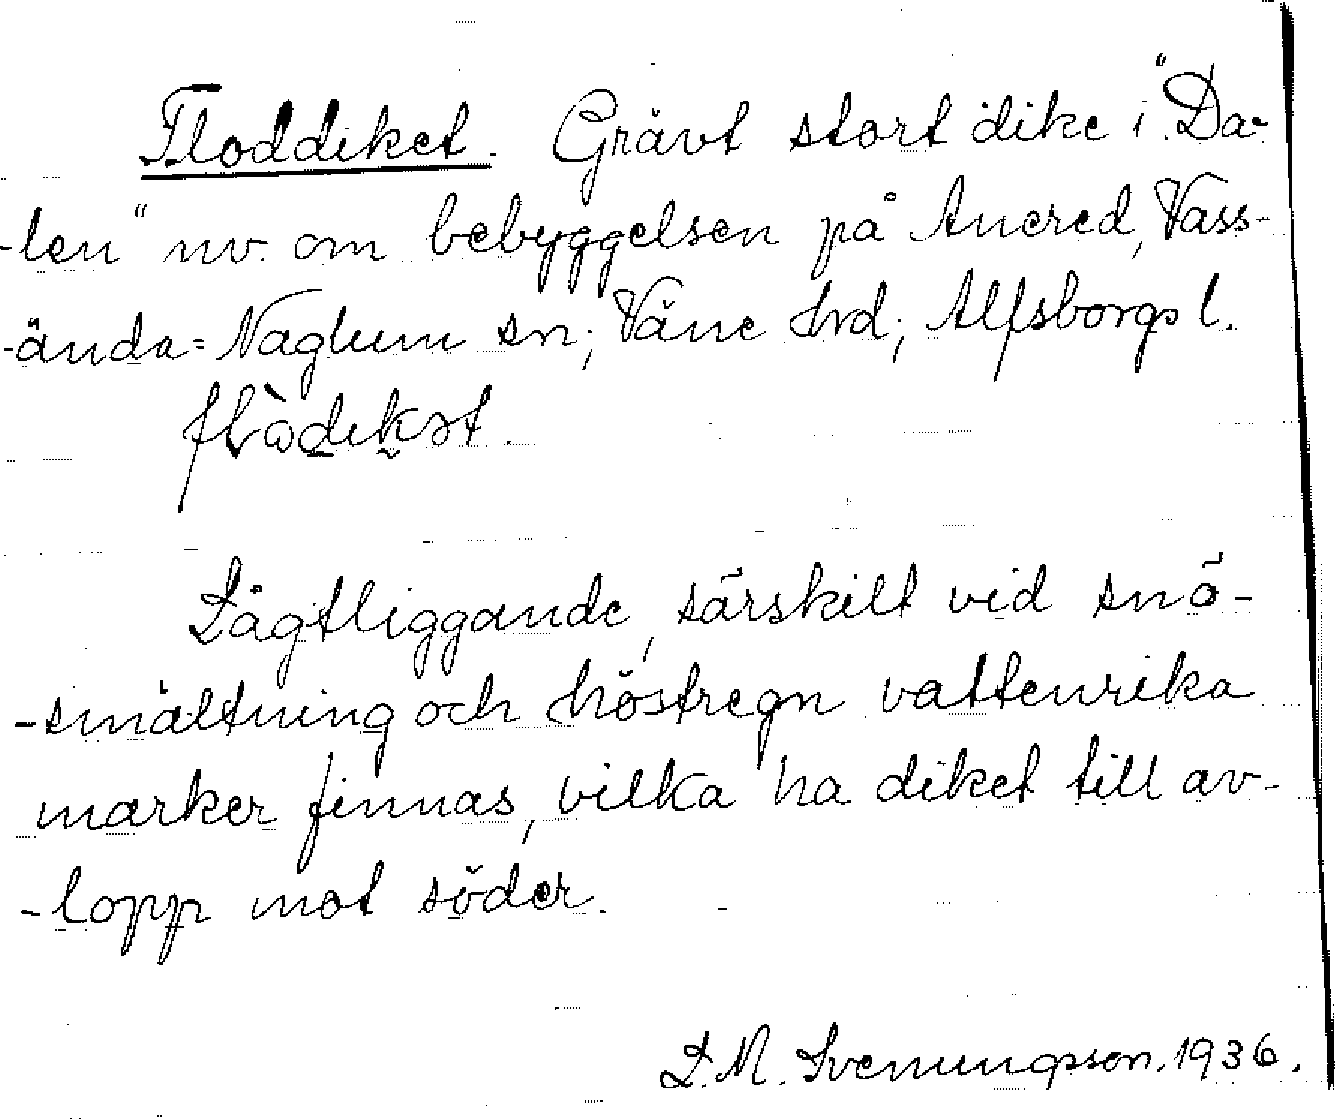 Floddiket. Grävt stort dike i "Da-
-len" nv. om bebyggelsen på Anered, Väss-
-ända-Naglum sn; Väne hrd; Älfsborgs l.
Lågtliggande, särskilt vid snö-
-smältning och höstregn vattenrika
marker finnas, vilka ha diket till av-
-lopp mot söder.
L. M. Svenungsson. 1936.